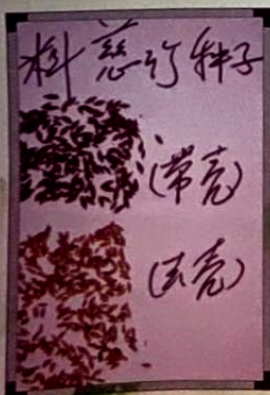 料慈竹种子
(带壳)
(去壳)